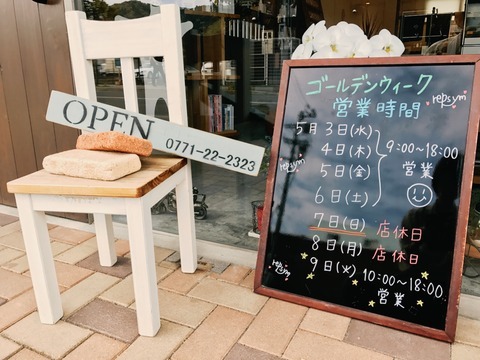 OPEN
0771-22-2323
ゴールデンウィーク
営業時間
repsym
5月3日(水)
4日(木)
5日(金)
6日(土)
9:00~18:00
営業
repsym
7日(日) 店休日
8日(月) 店休日
9日(火) 10:00~18:00
営業
repsym
repsym